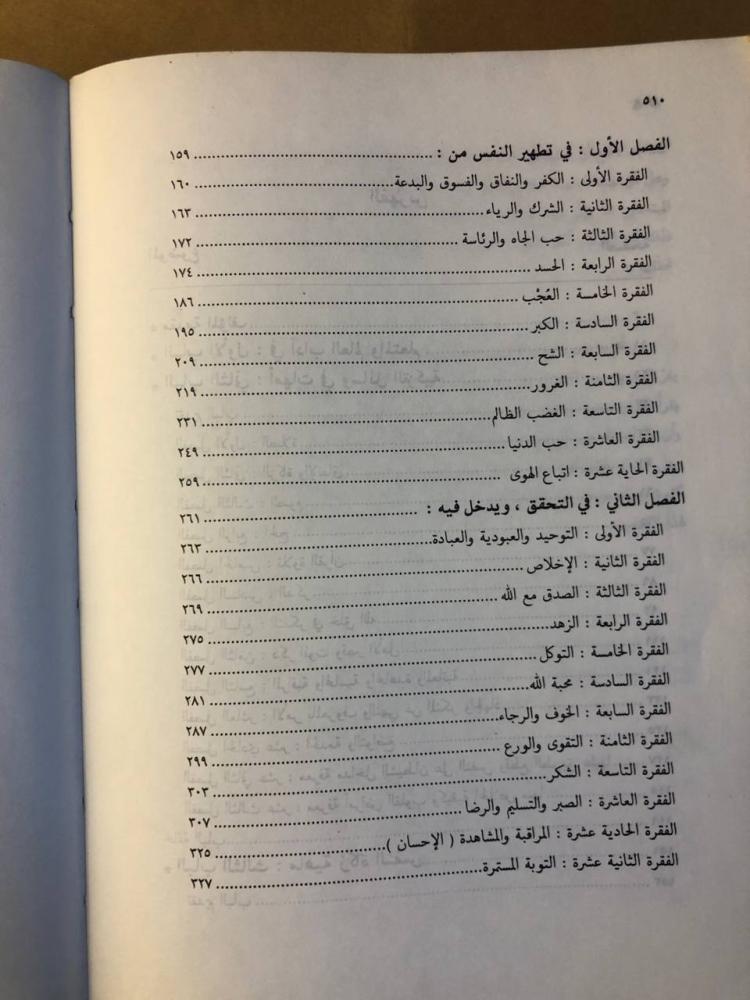 ٥١٠
الفصل الأول : في تطهير النفس من : ١٥٩
الفقرة الأولى : الكفر والنفاق والفسوق والبدعة ١٦٠
الفقرة الثانية : الشرك والرياء ١٦٣
الفقرة الثالثة : حب الجاه والرئاسة ١٧٢
الفقرة الرابعة : الحسد ١٧٤
الفقرة الخامسة : العُجْب ١٨٦
الفقرة السادسة : الكبر ١٩٥
الفقرة السابعة : الشح ٢٠٩
الفقرة الثامنة : الغرور ٢١٩
الفقرة التاسعة : الغضب الظالم ٢٣١
الفقرة العاشرة : حب الدنيا ٢٤٩
الفقرة الحاية عشرة : اتباع الهوى ٢٥٩
الفصل الثاني : في التحقق ، ويدخل فيه : ٢٦١
الفقرة الأولى : التوحيد والعبودية والعبادة ٢٦٣
الفقرة الثانية : الإخلاص ٢٦٦
الفقرة الثالثة : الصدق مع الله ٢٦٩
الفقرة الرابعة : الزهد ٢٧٥
الفقرة الخامسة : التوكل ٢٧٧
الفقرة السادسة : محبة الله ٢٨١
الفقرة السابعة : الخوف والرجاء ٢٨٧
الفقرة الثامنة : التقوى والورع ٢٩٩
الفقرة التاسعة : الشكر ٣٠٣
الفقرة العاشرة : الصبر والتسليم والرضا ٣٠٧
الفقرة الحادية عشرة : المراقبة والمشاهدة ( الإحسان ) ٣٢٥
الفقرة الثانية عشرة : التوبة المستمرة ٣٢٧